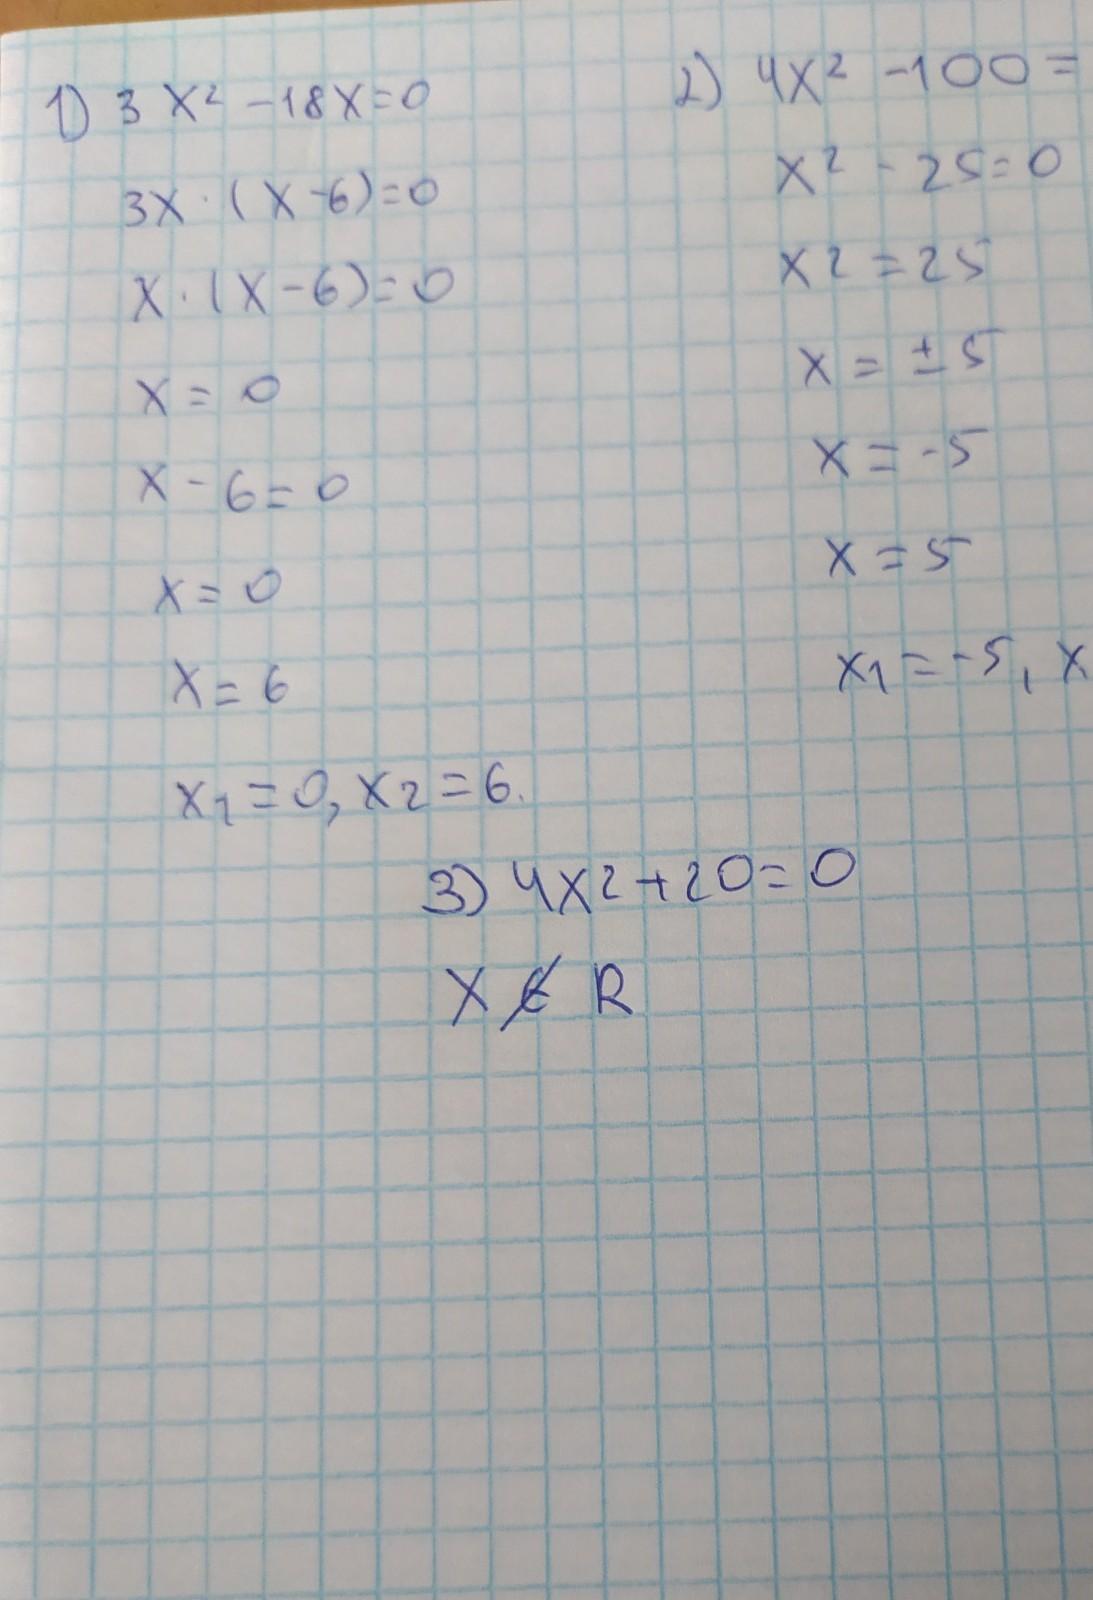 1) 3x² -18x=0
3x·(x-6)=0
x·(x-6)=0
x=0
x-6=0
x=0
x=6
x₁=0, x₂=6.
2) 4x² -100=
x² - 25=0
x²=25
x=±5
x=-5
x=5
x₁=-5, x
3) 4x²+20=0
x ∉ R